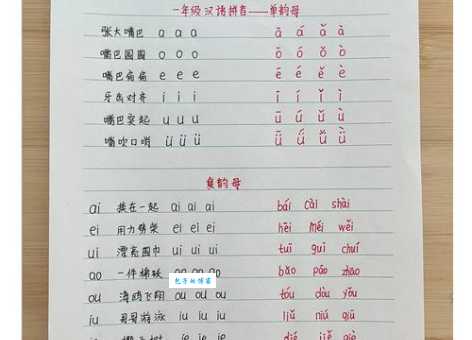 一年级汉语拼音——单韵母
张大嘴巴 a a a ā á ǎ à
嘴巴圆圆 o o o ō ó ǒ ò
嘴巴扁扁 e e e ē é ě è
牙齿对齐 i i i ī í ǐ ì
嘴巴突起 u u u ū ú ǔ ù
嘴吹口哨 ü ü ü ǖ ǘ ǚ ǜ
复韵母
ai 挨在一起 ai ai ai bái cài shài
ei 用力劈柴 ei ei ei hēi méi wěi
ui 漂亮围巾 ui ui ui tuī guì chuí
ao 一件棉袄 ao ao ao bǎo pào zhāo
ou 海鸥飞翔 ou ou ou tóu dòu yōu
iu 哥哥游泳 iu iu iu liǔ niú qiū
ie ie ie dié jiě